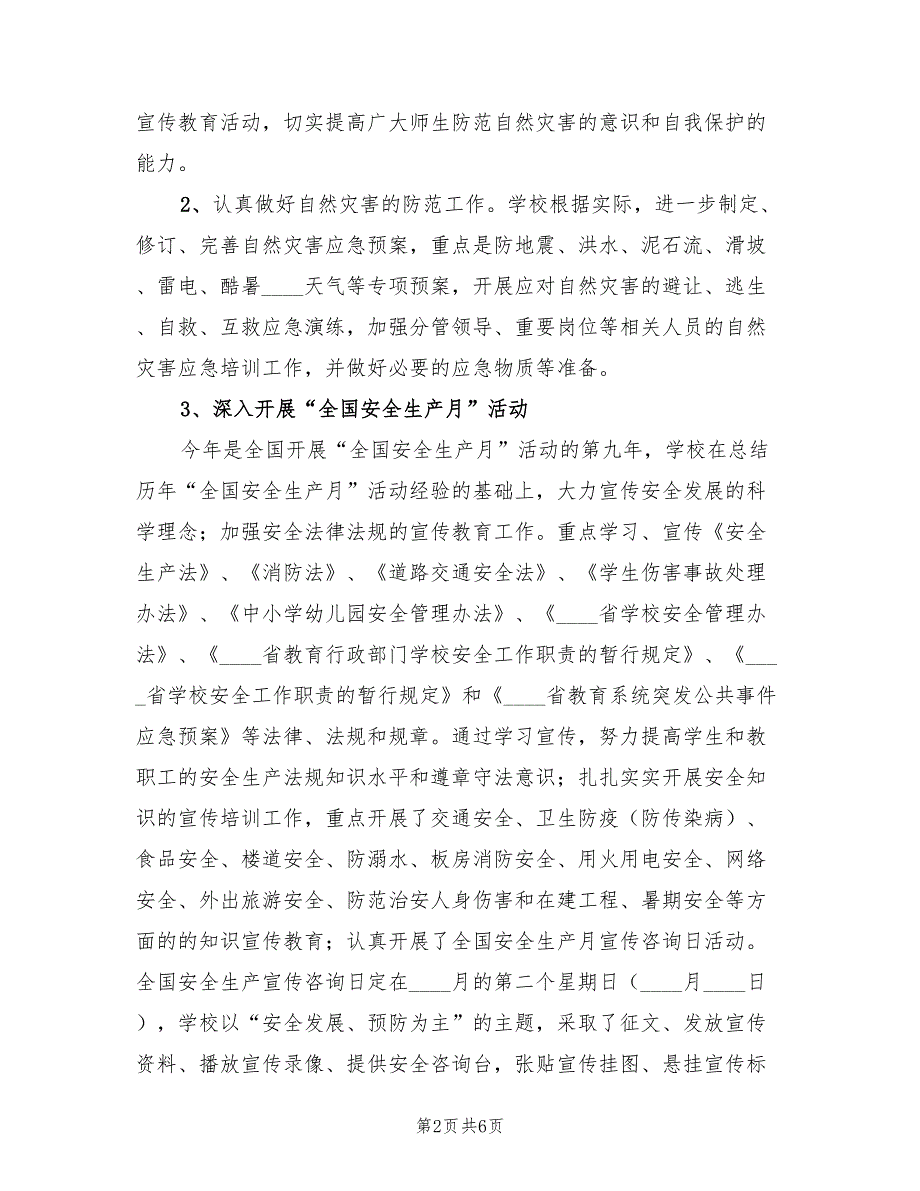 宣传教育活动，切实提高广大师生防范自然灾害的意识和自我保护的
能力。
2、认真做好自然灾害的防范工作。学校根据实际，进一步制定、
修订、完善自然灾害应急预案，重点是防地震、洪水、泥石流、滑坡
、雷电、酷暑____天气等专项预案，开展应对自然灾害的避让、逃生
、自救、互救应急演练，加强分管领导、重要岗位等相关人员的自然
灾害应急培训工作，并做好必要的应急物质等准备。
3、深入开展“全国安全生产月”活动
今年是全国开展“全国安全生产月”活动的第九年，学校在总结
历年“全国安全生产月”活动经验的基础上，大力宣传安全发展的科
学理念；加强安全法律法规的宣传教育工作。重点学习、宣传《安全
生产法》、《消防法》、《道路交通安全法》、《学生伤害事故处理
办法》、《中小学幼儿园安全管理办法》、《____省学校安全管理办
法》、《____省教育行政部门学校安全工作职责的暂行规定》、《___
_省学校安全工作职责的暂行规定》和《____省教育系统突发公共事件
应急预案》等法律、法规和规章。通过学习宣传，努力提高学生和教
职工的安全生产法规知识水平和遵章守法意识；扎扎实实开展安全知
识的宣传培训工作，重点开展了交通安全、卫生防疫（防传染病）、
食品安全、楼道安全、防溺水、板房消防安全、用火用电安全、网络
安全、外出旅游安全、防范治安人身伤害和在建工程、暑期安全等方
面的的知识宣传教育；认真开展了全国安全生产月宣传咨询日活动。
全国安全生产宣传咨询日定在____月的第二个星期日（____月____日
），学校以“安全发展、预防为主”的主题，采取了征文、发放宣传
资料、播放宣传录像、提供安全咨询台，张贴宣传挂图、悬挂宣传标
第2页 共6页